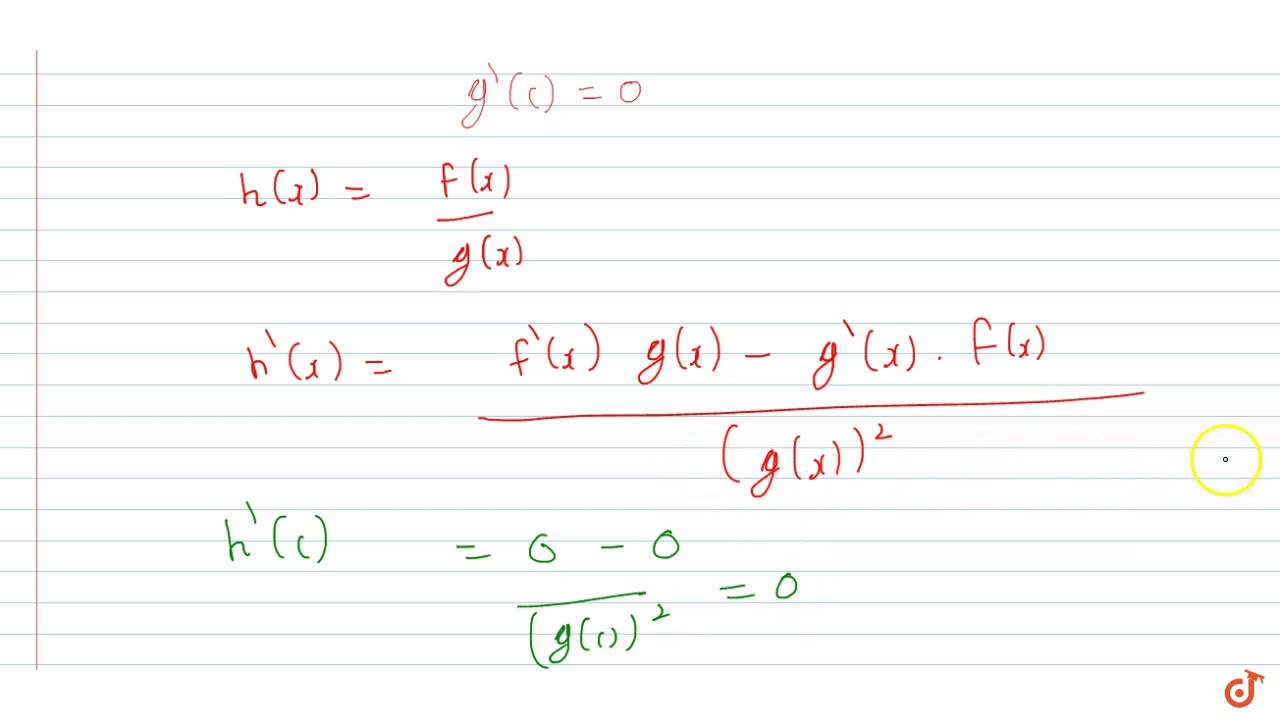 g'(c) = 0
h(x) = f(x)
g(x)
h'(x) = f'(x) g(x) - g'(x) . f(x)
(g(x))²
h'(c) = 0 - 0
(g(c))² = 0